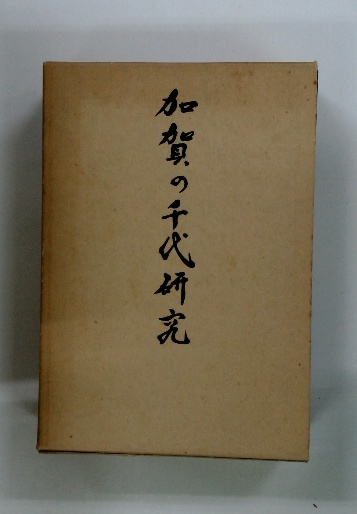 加賀の千代研究